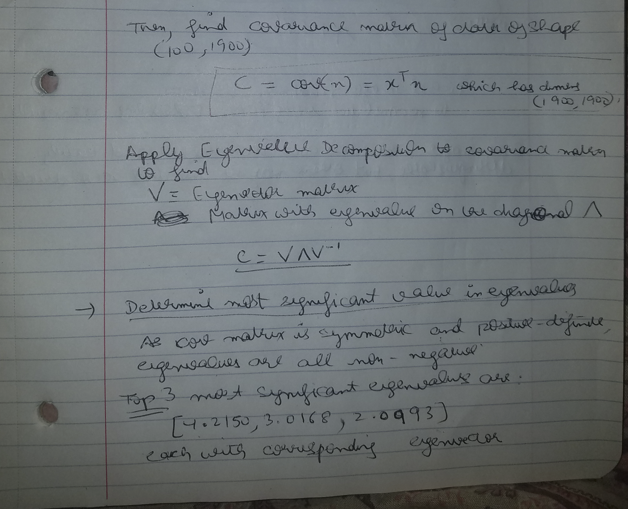 Then, find covariance matrix of data of shape
(100, 1900)
C = cov(x) = xᵀx which has dims
(1900, 1900).
Apply Eigenvalue Decomposition to covariance matrix
to find
V = Eigenvector matrix
Matrix with eigenvalue on the diagonal Λ
C = VΛV⁻¹
→ Determine most significant value in eigenvalues
As cov matrix is symmetric and positive-definite,
eigenvalues are all non-negative.
Top 3 most significant eigenvalues are:
[4.2150, 3.0168, 2.0993]
each with corresponding eigenvector